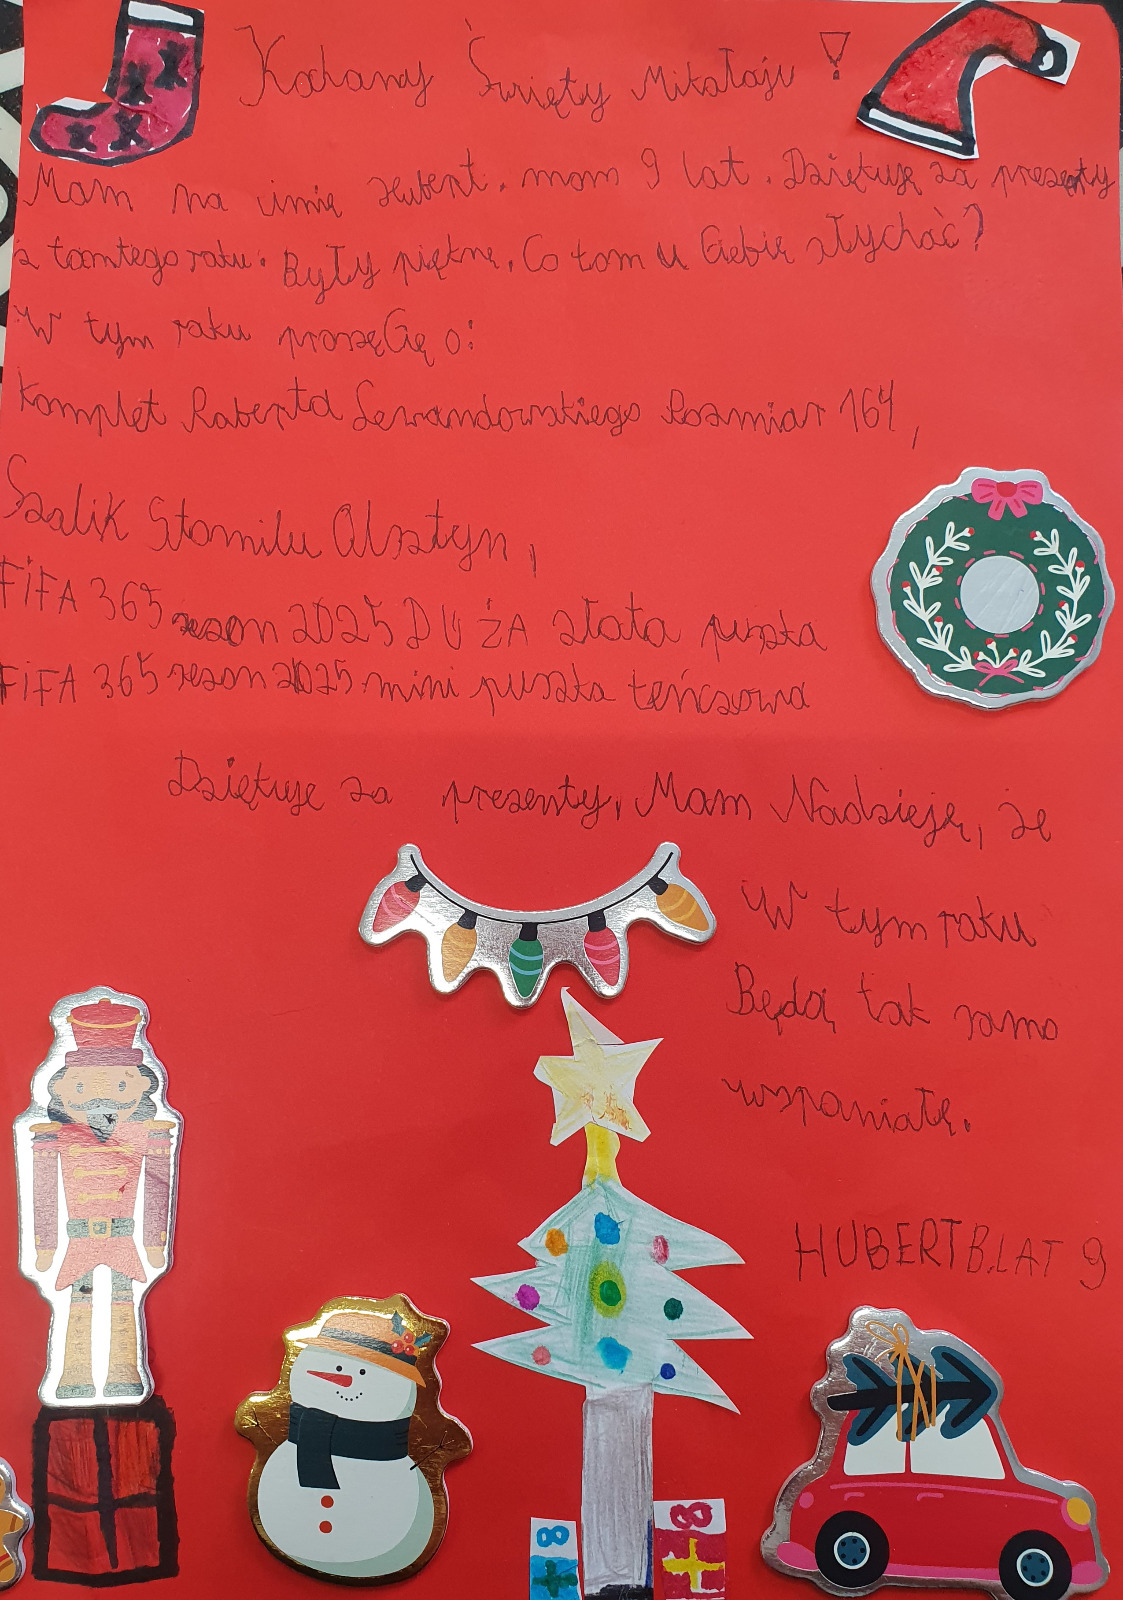 Kochany Święty Mikołaju!
Mam na imię Hubert. mam 9 lat. Dziętuję za prezęty
z tamtego roku. Były piękne. Co tam u Ciebie słychać?
W tym roku proszę Cię o:
Komplet Roberta Lewandowskiego Rozmiar 164,
Szalik Stomilu Olsztyn,
FiFA 365 sezon 2025 DUŻA złota puszka
FiFA 365 sezon 2025 mini puszka teńczowa
Dziętuję za prezenty, Mam Nadzieję, że
W tym roku
Będą tak samo
wspaniałę.
HUBERT B. LAT 9